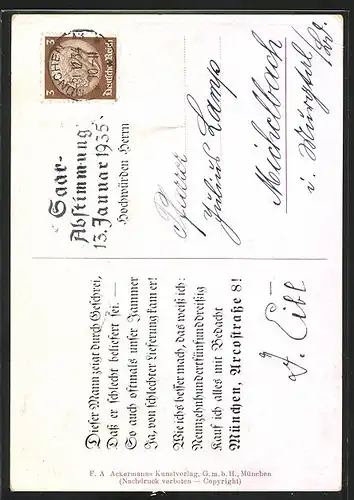 Dieser Mann zeigt durch Geschrei,
Daß er schlecht beliefert sei. —
So auch oftmals unser Jammer
Ja, von schlechter Lieferung kam er!
Wie ichs besser mach, das weiß ich:
Neunzehnhundertfünfunddreißig
Kauf ich alles mit Bedacht
München, Arcostraße 8!
J. Eibl
F. A. Ackermanns Kunstverlag, G. m. b. H., München
(Nachdruck verboten — Copyright)
3 3
Deutsches Reich
MÜNCHEN
Saar-
Abstimmung
13. Januar 1935
Hochwürden Herrn
Pfarrer
Julius Lamp
Michelbach
i. Murgtal